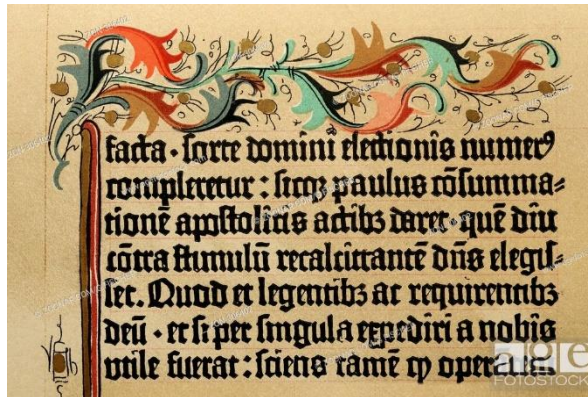 facta · sorte domini electionis numerꝰ
compleretur : sicqꝫ paulus cōsumma=
tionē apostolicis actibꝫ daret · quē diu
cōtra stimulū recalcitrantē dn̄s elegis=
set. Quod et legentibꝫ ac requirentibꝫ
deū · et si per singula expediri a nobis
utile fuerat : sciens tamē ꝙ operantem
age
FOTOSTOCK